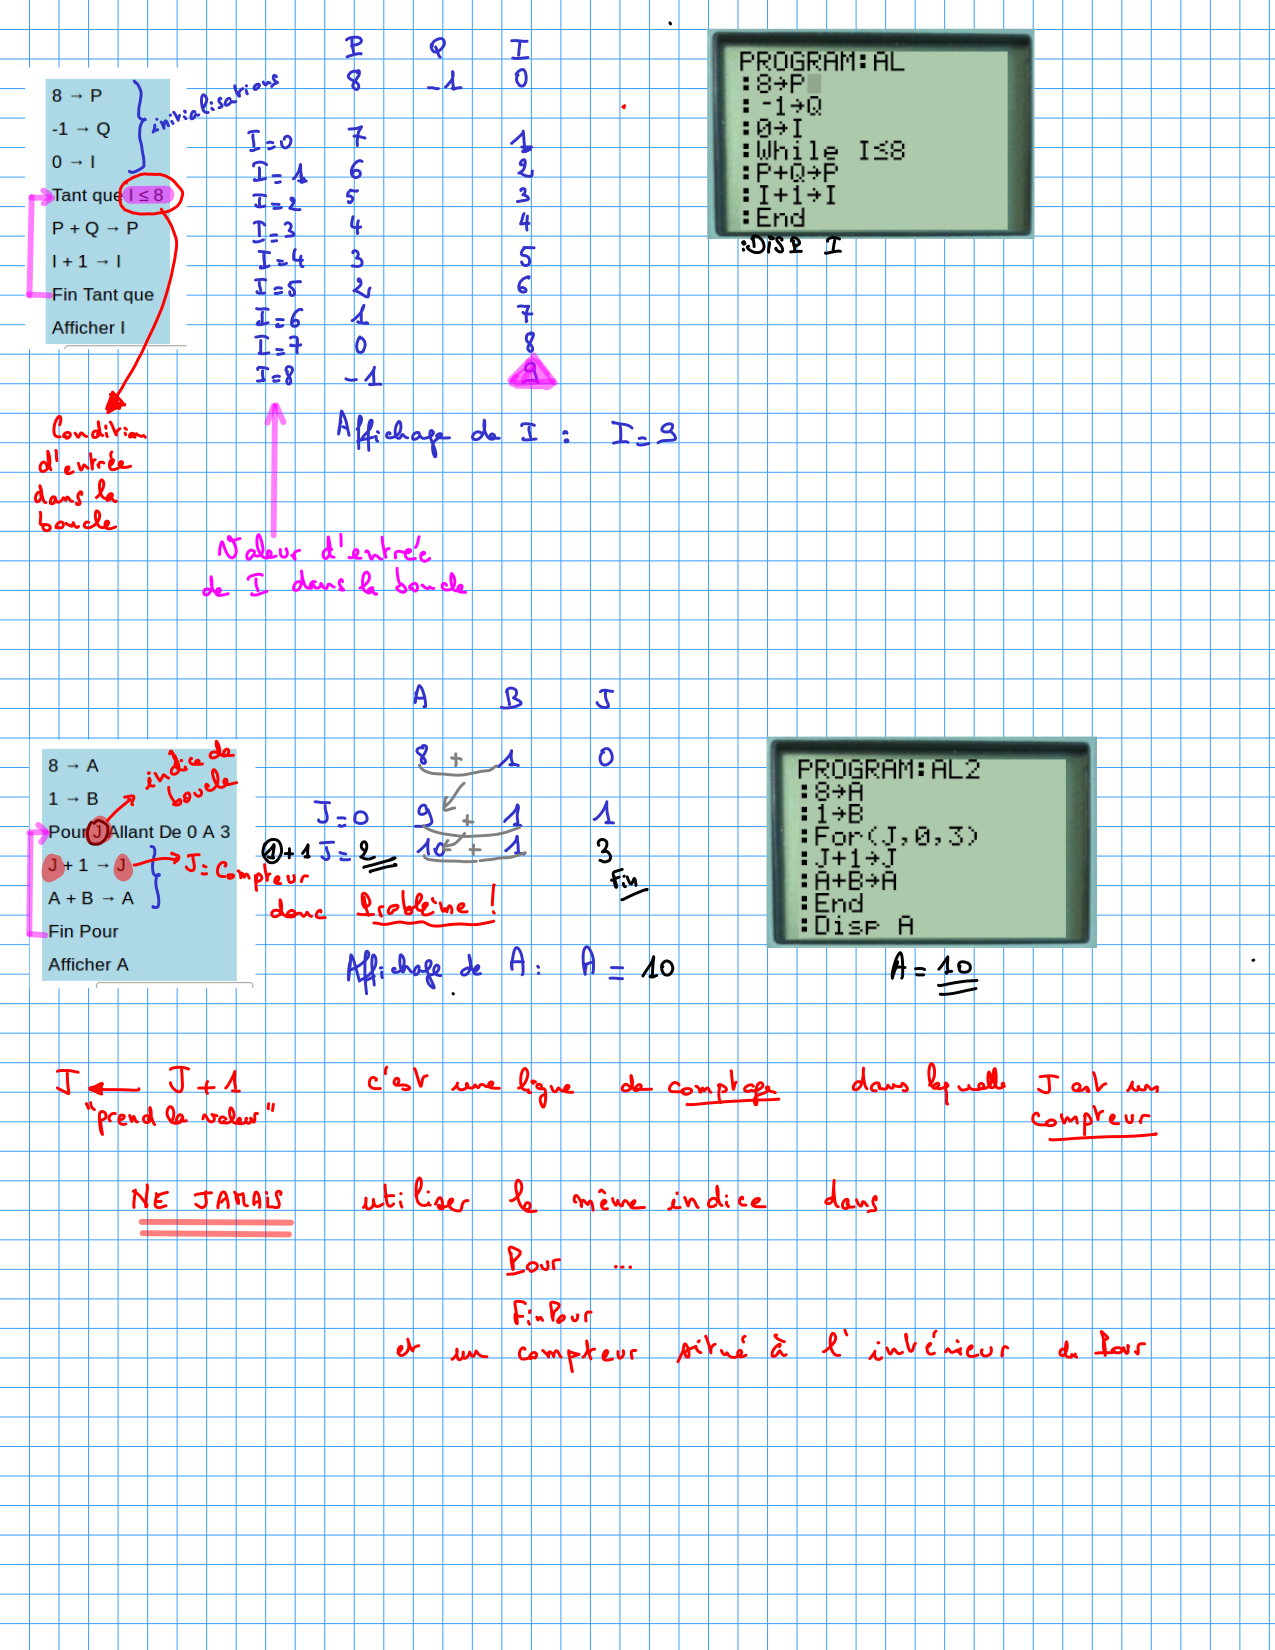 P Q I
8 -1 0
8 → P
-1 → Q
0 → I
initialisations
Tant que I ≤ 8
P + Q → P
I + 1 → I
Fin Tant que
Afficher I
I=0 7 1
I=1 6 2
I=2 5 3
I=3 4 4
I=4 3 5
I=5 2 6
I=6 1 7
I=7 0 8
I=8 -1 9
PROGRAM:AL
:8→P
:-1→Q
:0→I
:While I≤8
:P+Q→P
:I+1→I
:End
:DISP I
Affichage de I : I=9
Condition
d'entrée
dans la
boucle
Valeur d'entrée
de I dans la boucle
A B J
8 + 1 0
J=0 9 + 1 1
1+1 J=2 10 + 1 3
Fin
8 → A
1 → B
Pour J Allant De 0 A 3
J + 1 → J
A + B → A
Fin Pour
Afficher A
indice de
boucle
J = Compteur
donc Problème !
Affichage de A : A = 10
PROGRAM:AL2
:8→A
:1→B
:For(J,0,3)
:J+1→J
:A+B→A
:End
:Disp A
A = 10
J ← J+1 c'est une ligne de comptage dans laquelle J est un
"prend la valeur" compteur
NE JAMAIS utiliser le même indice dans
Pour ...
FinPour
et un compteur situé à l'intérieur du Pour